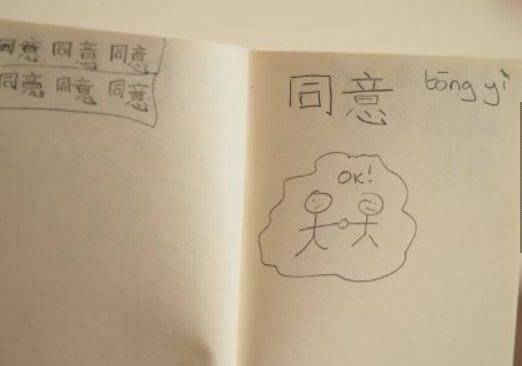 同意 同意 同意
同意 同意 同意
同意 tōng yì
OK!